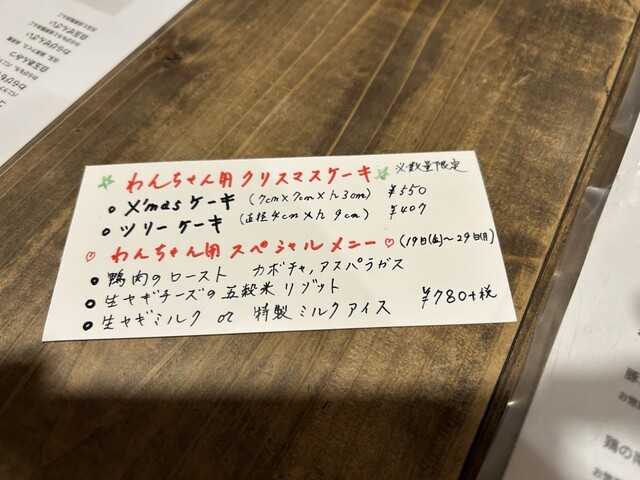 わんちゃん用クリスマスケーキ ※数量限定
• X'masケーキ (7cm×7cm×h3cm) ¥550
• ツリーケーキ (直径4cm×h9cm) ¥407
♡ わんちゃん用スペシャルメニー♡ (19日(金)〜29日(月)
• 鴨肉のロースト カボチャ,アスパラガス
• 生ヤギチーズの五穀米リゾット
• 生ヤギミルク or 特製ミルクアイス ¥780+税
鶏の南